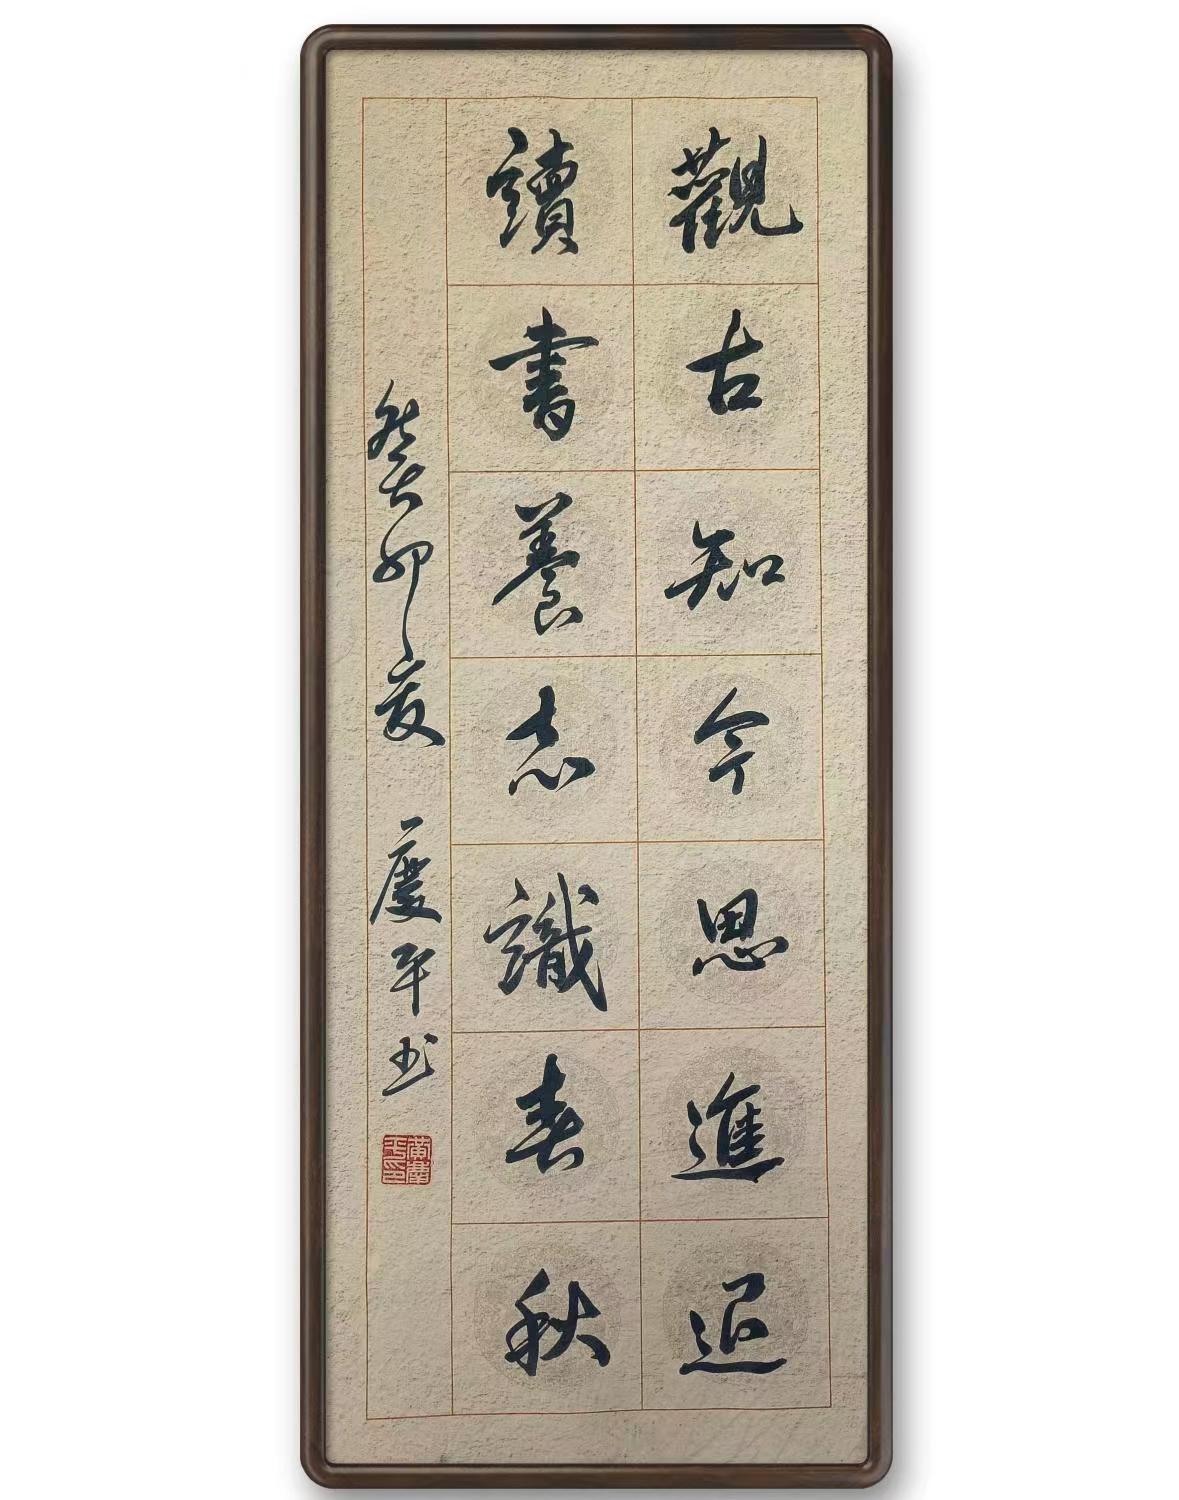 觀古知今思進退
讀書養志識春秋
癸卯夏 慶平书
黄慶平印